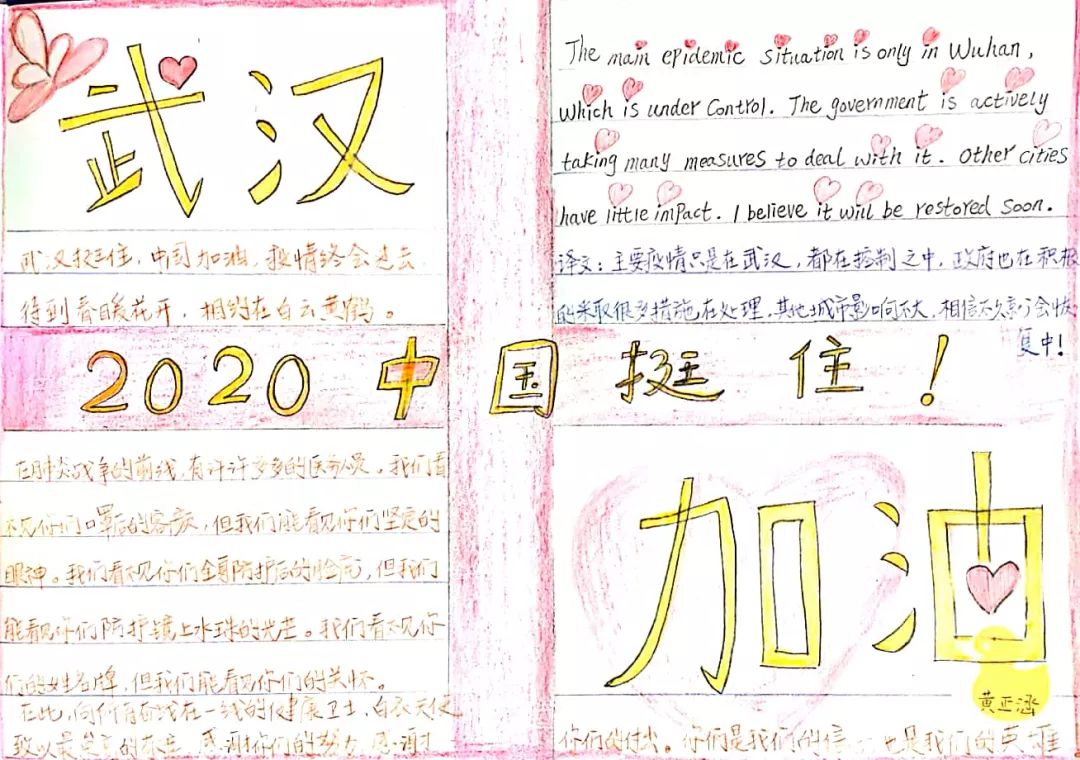 武汉
武汉挺住，中国加油，疫情终会过去，
得到春暖花开，相约在白云黄鹤。
The main epidemic situation is only in Wuhan,
Which is under Control. The government is actively
taking many measures to deal with it. Other cities
have little impact. I believe it will be restored soon.
译文：主要疫情只是在武汉，都在控制之中，政府也在积极
的采取很多措施在处理，其他城市影响不大，相信不久就会恢
复中！
2020中国挺住！
在肺炎战争的前线，有许许多多的医务人员。我们看
不见你们口罩后的容颜，但我们能看见你们坚定的
眼神。我们看不见你们全身防护后的脸庞，但我们
能看见你们防护镜上水珠的光芒。我们看不见你
们的姓名牌，但我们能看见你们的关怀。
在此，向所有奋战在一线的健康卫士，白衣天使
致以最 的 ，感谢你们的努力，感谢
加油
黄正涵
你们的付出。你们是我们的信 也是我们的英雄